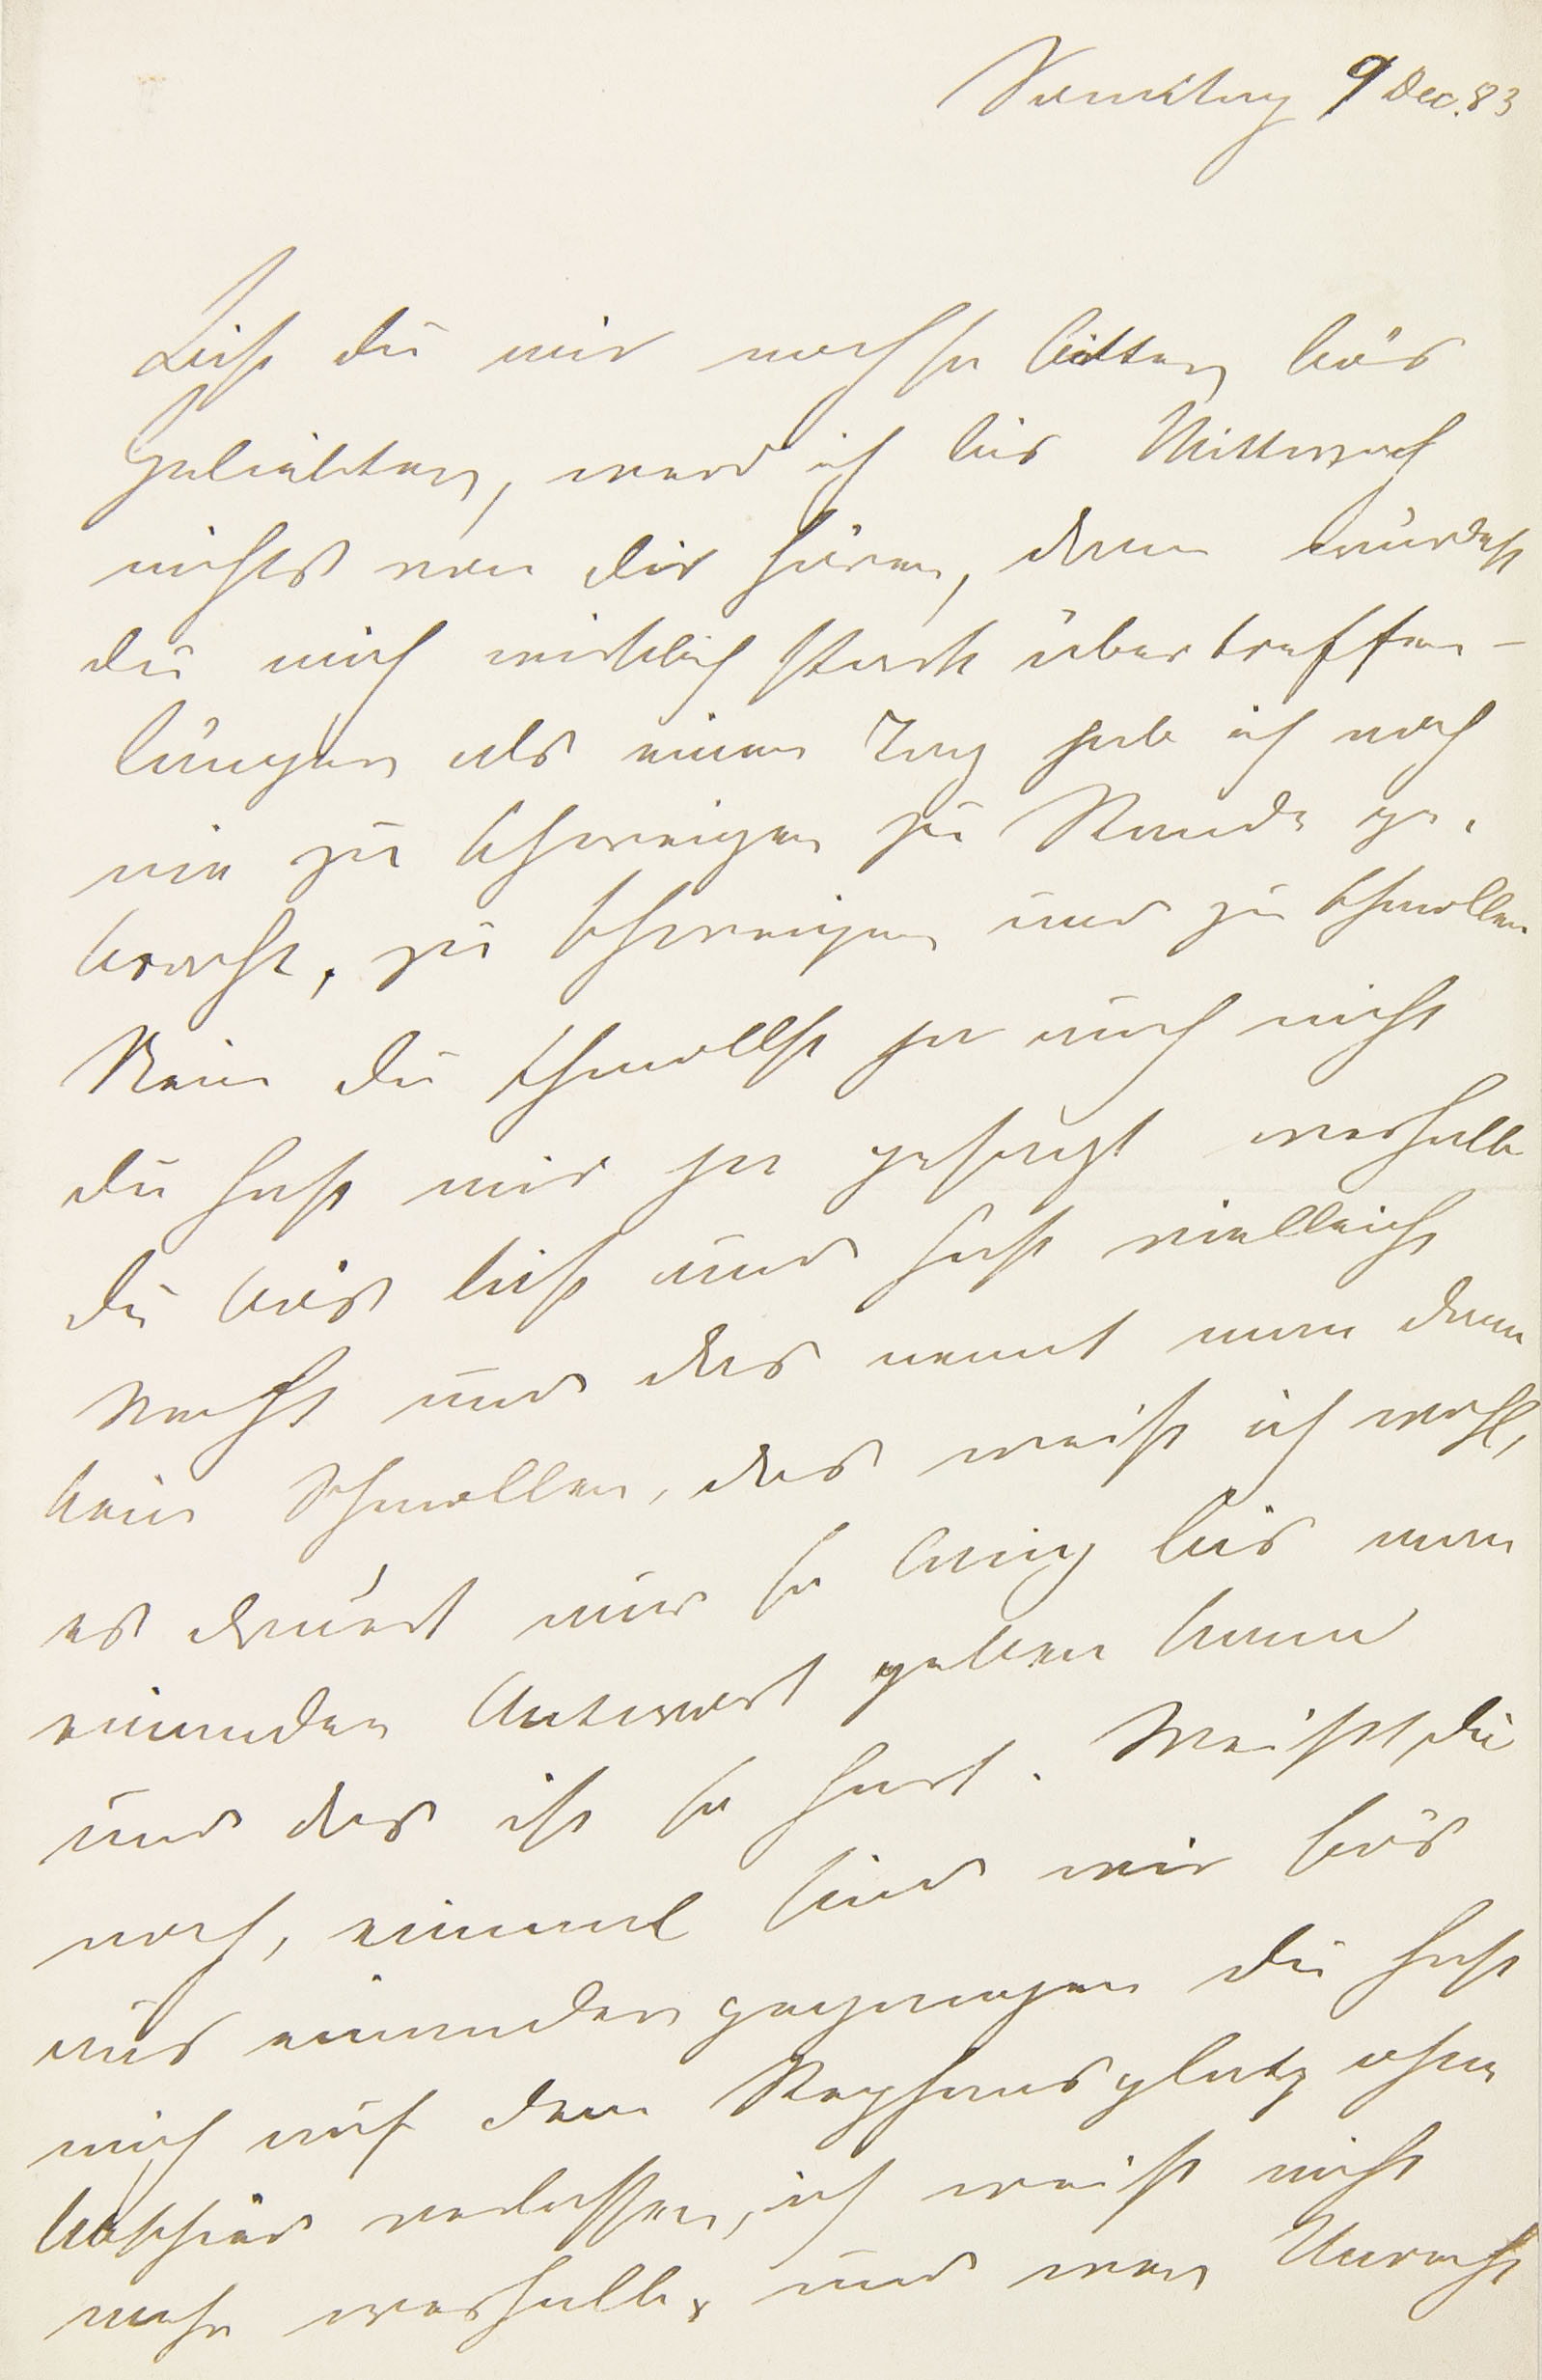 Sonntag 9 Dec. 83
Bist du mir noch so bitter bös
Geliebter, werd ich bis Mittwoch
nichts von dir hören, dann würdest
du mich wirklich stark übertreffen –
länger als einen Tag hab ich noch
nie zu schweigen zu Stande ge-
bracht, zu schweigen und zu schmollen
Nein du schmollst ja auch nicht
du hast mir ja gesagt weshalb
du bös bist und hast vielleicht
Recht und das nennt man dann
kein Schmollen, das weiß ich wohl,
es dauert nur so lang bis man
einander Antwort geben kann
und das ist so hart. Weißt du
noch, einmal sind wir bös
aus einander gegangen du hast
mich auf dem Stephansplatz ohne
Abschied verlassen, ich weiß nicht
mehr weshalb, und wer Unrecht